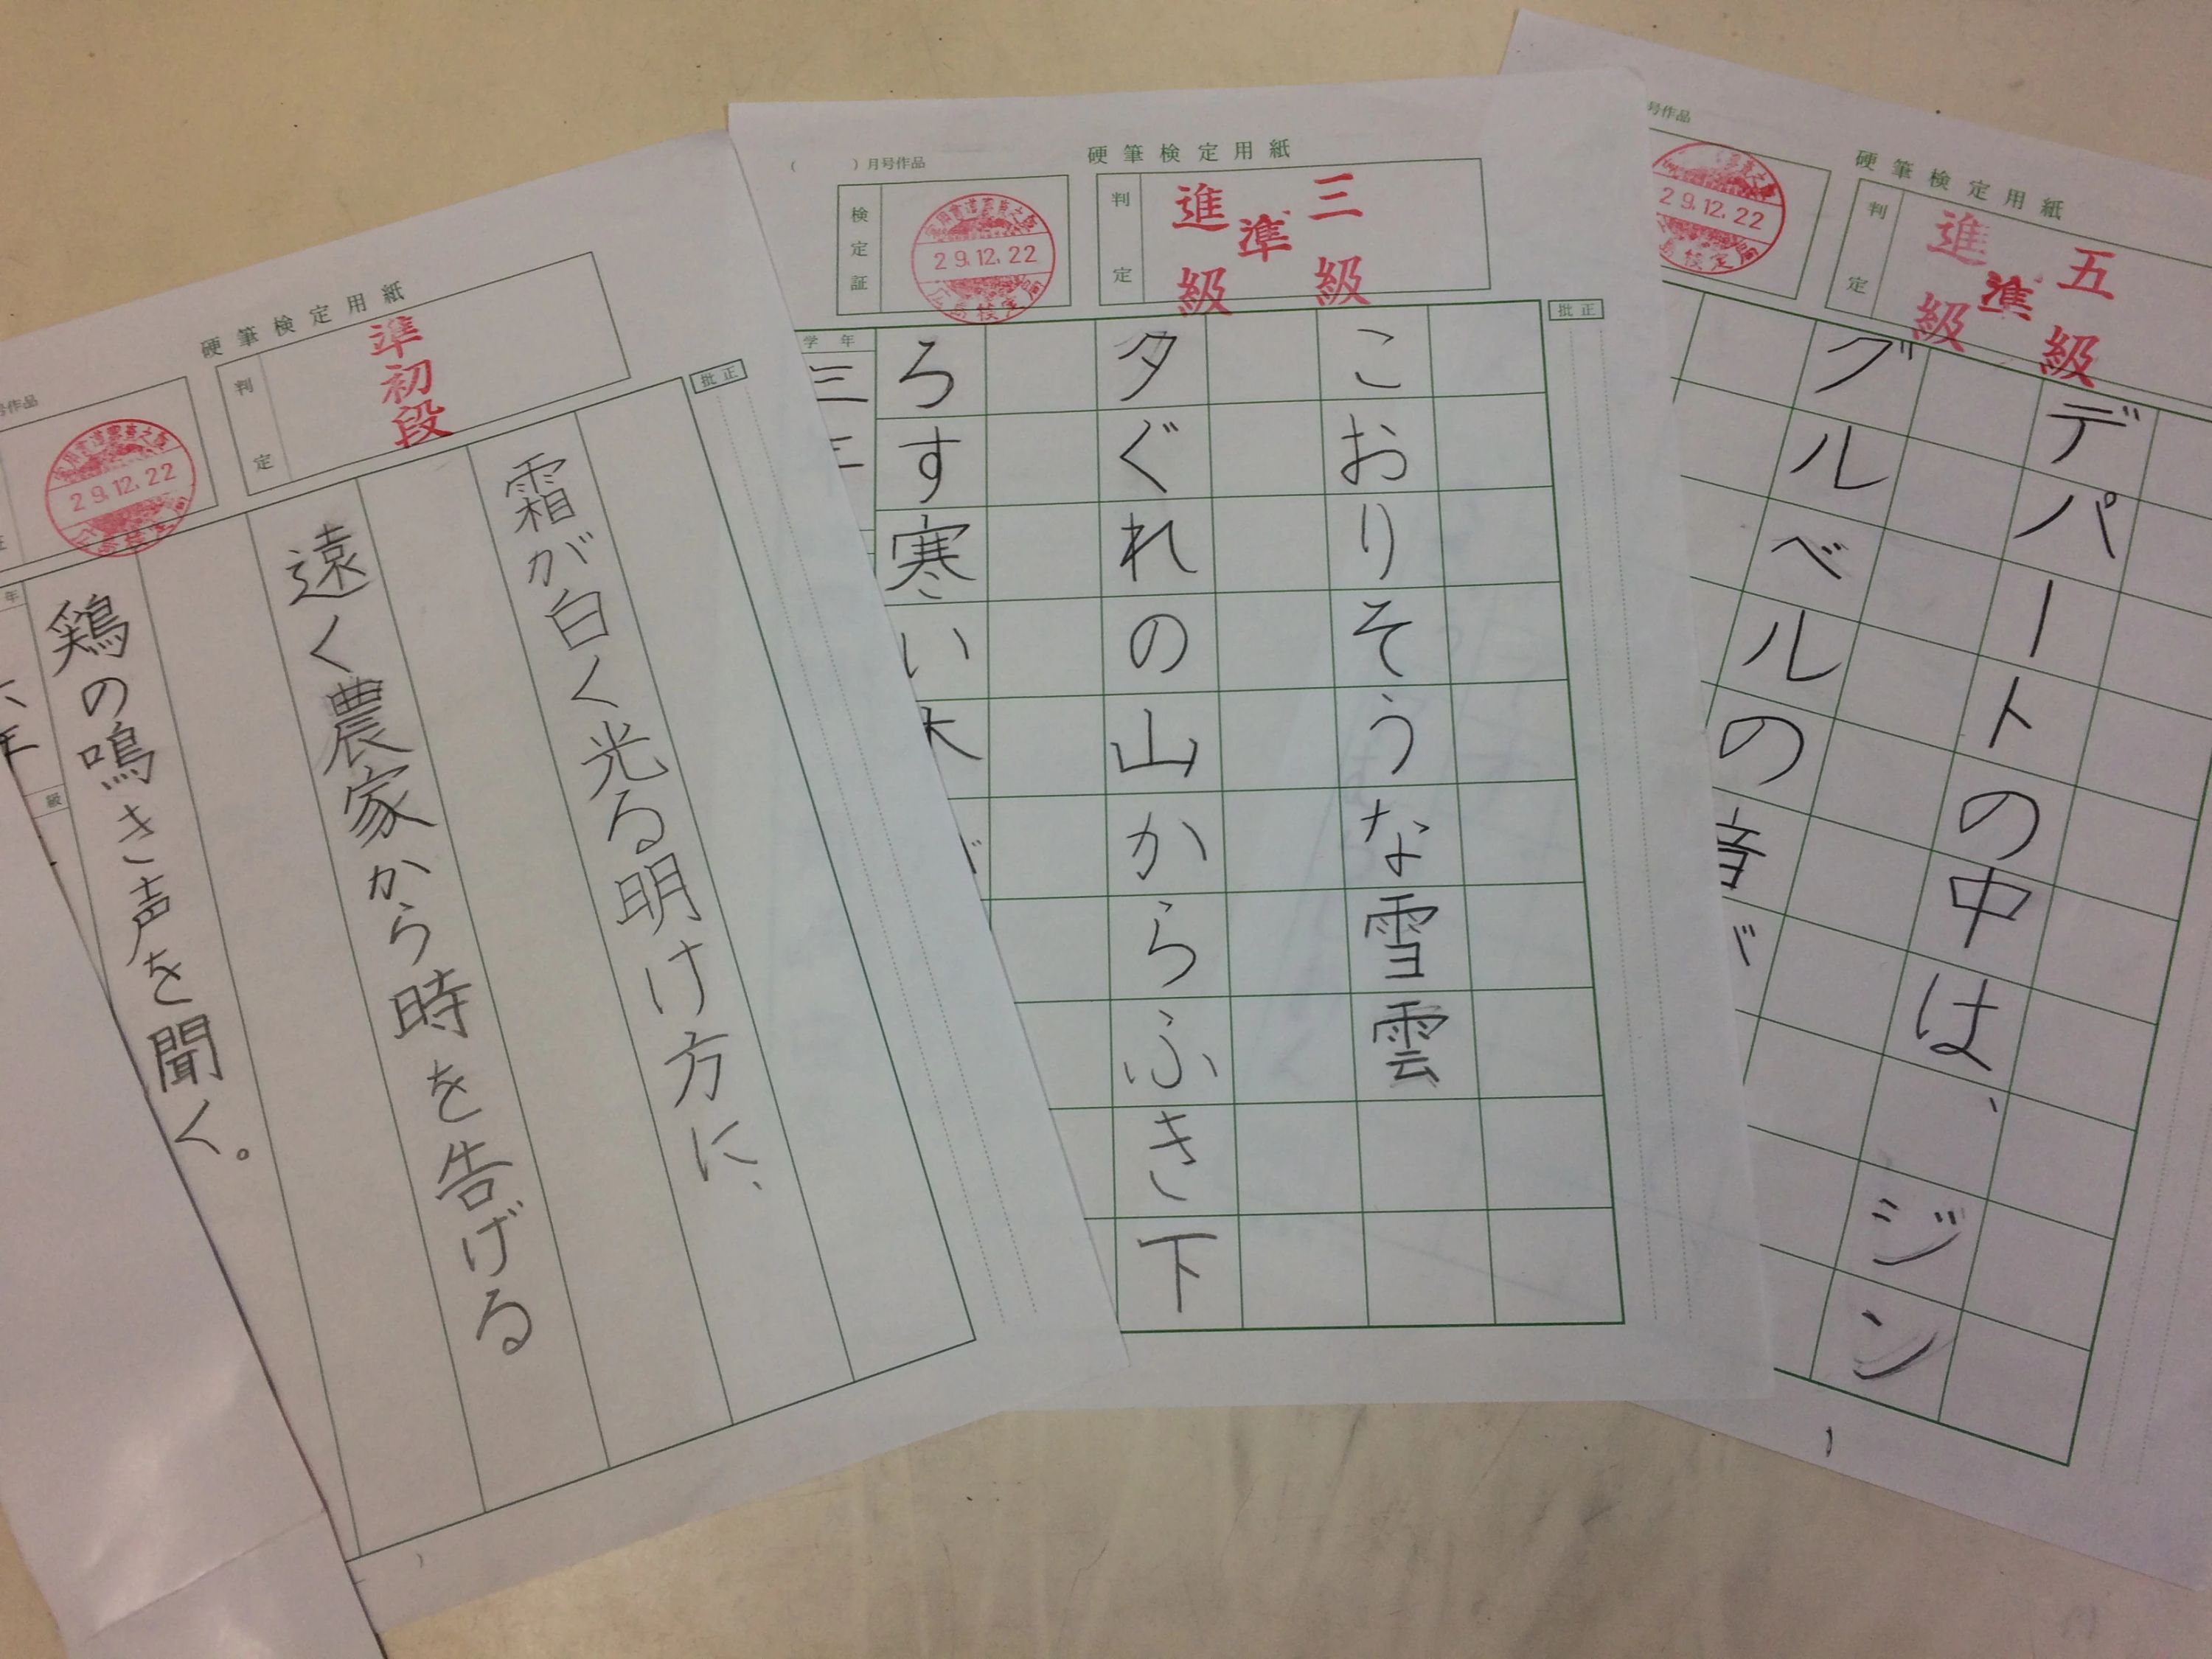 号作品
硬筆検定用紙
判定
準初段
29.12.22
批正
霜が白く光る明け方に、
遠く農家から時を告げる
鶏の鳴き声を聞く。
年
級
六年
( )月号作品
硬筆検定用紙
検定証
29.12.22
判定
三級
準
進級
批正
こおりそうな雪雲
夕ぐれの山からふき下
ろす寒い
学年
三年
号作品
硬筆検定用紙
29.12.22
検定
判定
五級
準
進級
デパートの中は、ジン
グルベルの音が